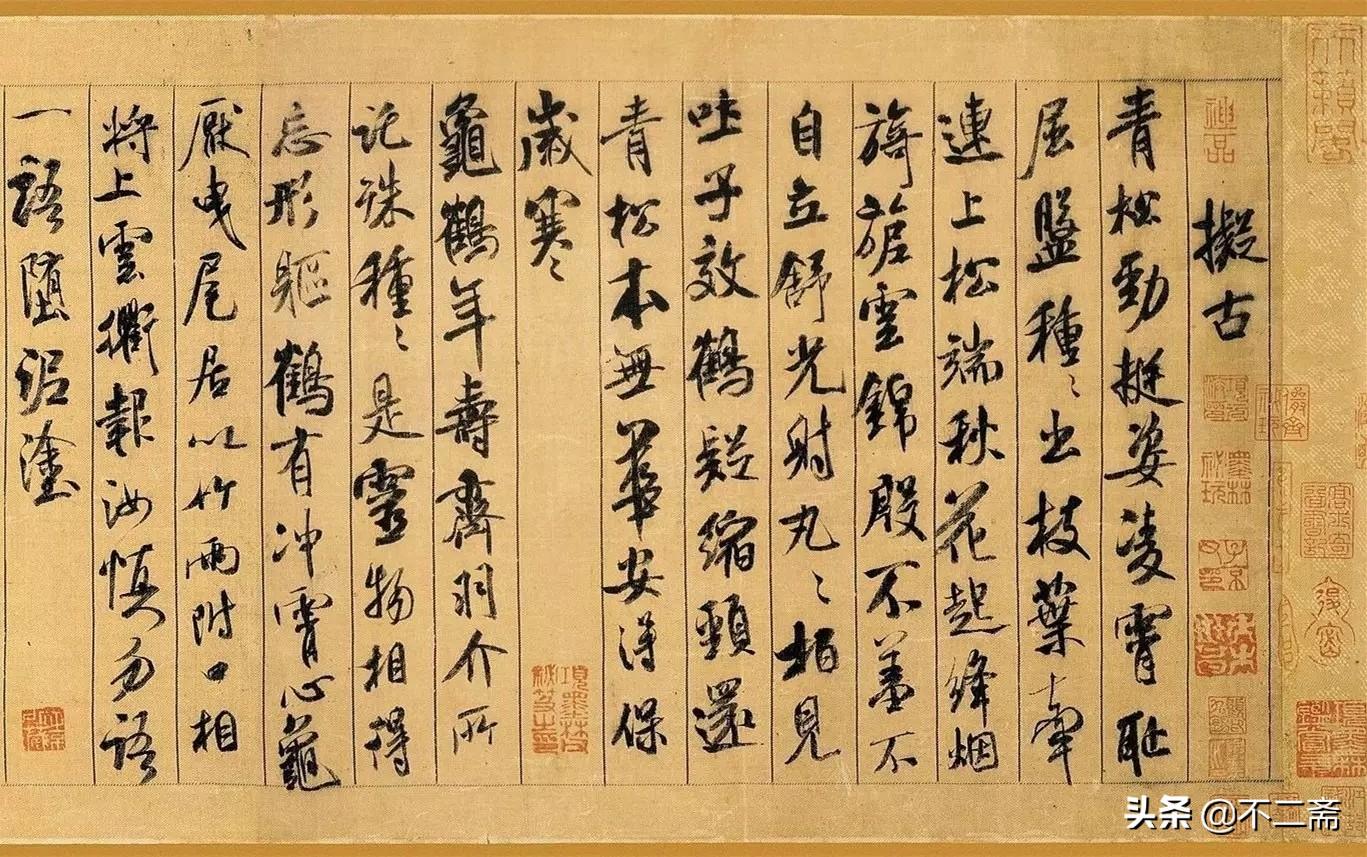 擬古
青松勁挺姿凌霄恥
屈盤種〻出枝葉牽
連上松端秋花起絳烟
旖旎雲錦殷不羞不
自立舒光射丸〻柏見
吐子效鶴疑縮頸還
青松本無華安得保
歲寒〻
龜鶴年壽齊羽介所
託殊種〻是靈物相得
忘形軀鶴有冲霄心龜
厭曳尾居以竹兩附口相
將上雲衢報汝慎勿語
一語墮泥塗
头条 @不二斋